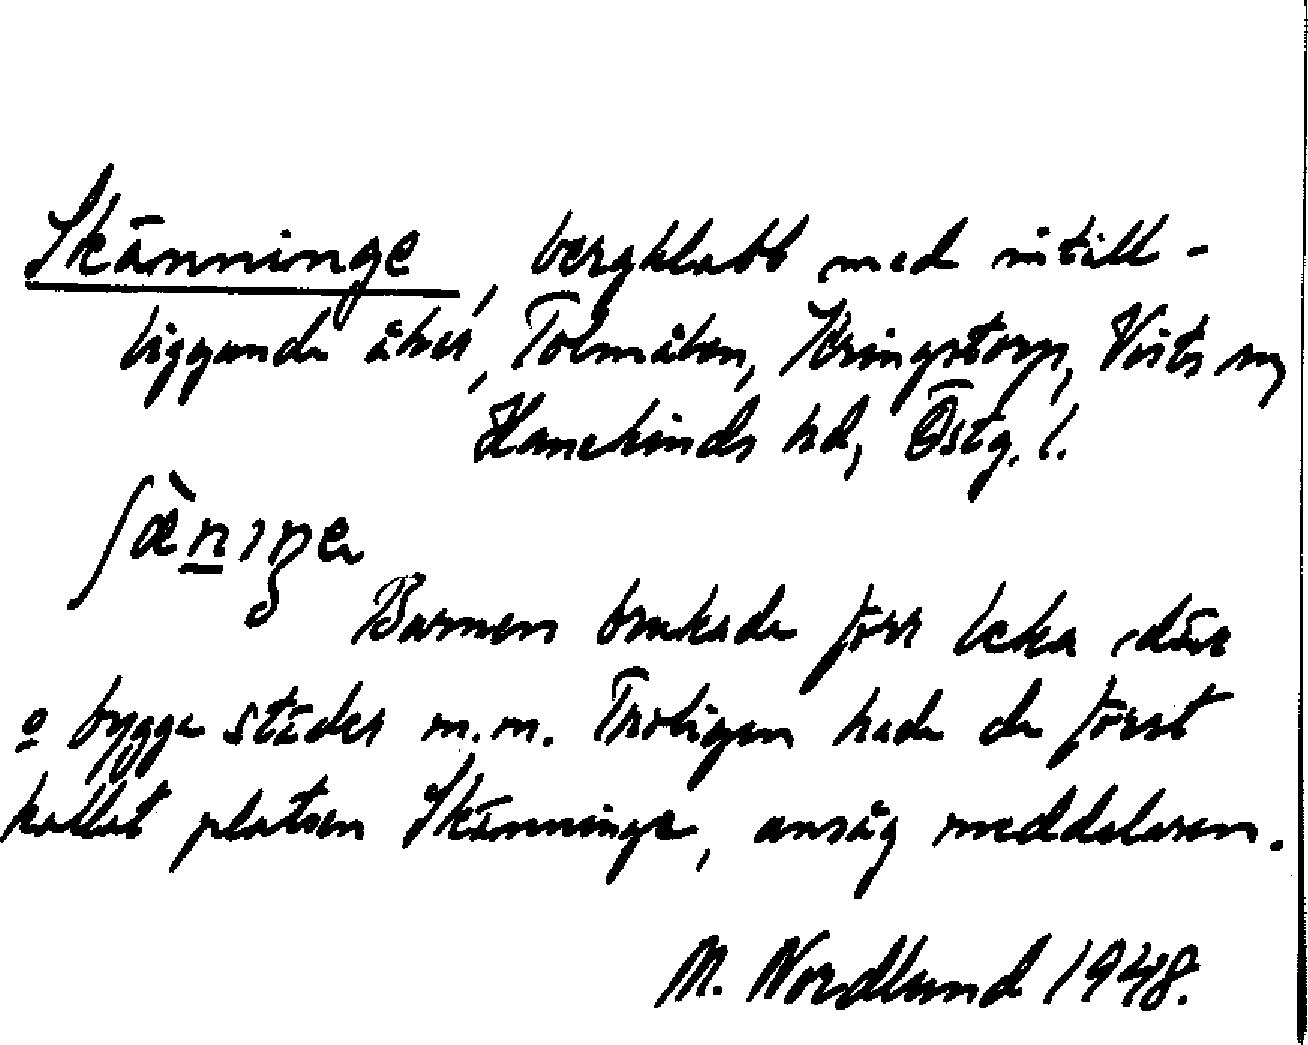 Skänninge, bergklabb med intill-
liggande åker, Tolmåla, Kringstorp, Vists sn,
Hanekinds hd, Östg. l.
ʃæ̀nıŋe
Barnen brukade förr leka där
o bygga städer m.m. Troligen hade de först
kallat platsen Skänninge, ansåg meddelaren.
M. Nordlund 1948.